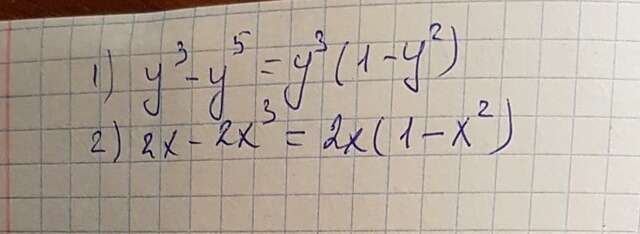 1) y³ - y⁵ = y³ (1 - y²)
2) 2x - 2x³ = 2x (1 - x²)